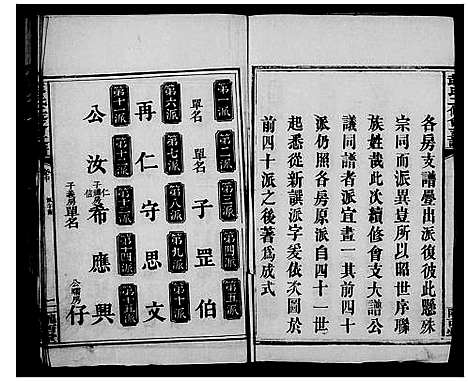 各房支譜疊出派復彼此懸殊
宗同而派異豈所以昭世序聯
族姓哉此次續修會支大譜公
議同譜者派宜畫一其前四十
派仍照各房原派自四十一世
起悉從新譔派字爰依次圖於
前四十派之後著為成式
第一派 單名
第二派 單名
第三派 子
第四派 罡
第五派 伯
第六派 再
第七派 仁
第八派 守
第九派 思
第十派 文
第十一派 公
第十二派 汝
第十三派 希
第十四派 應
第十五派 興
子義房單名
公曙房 仔